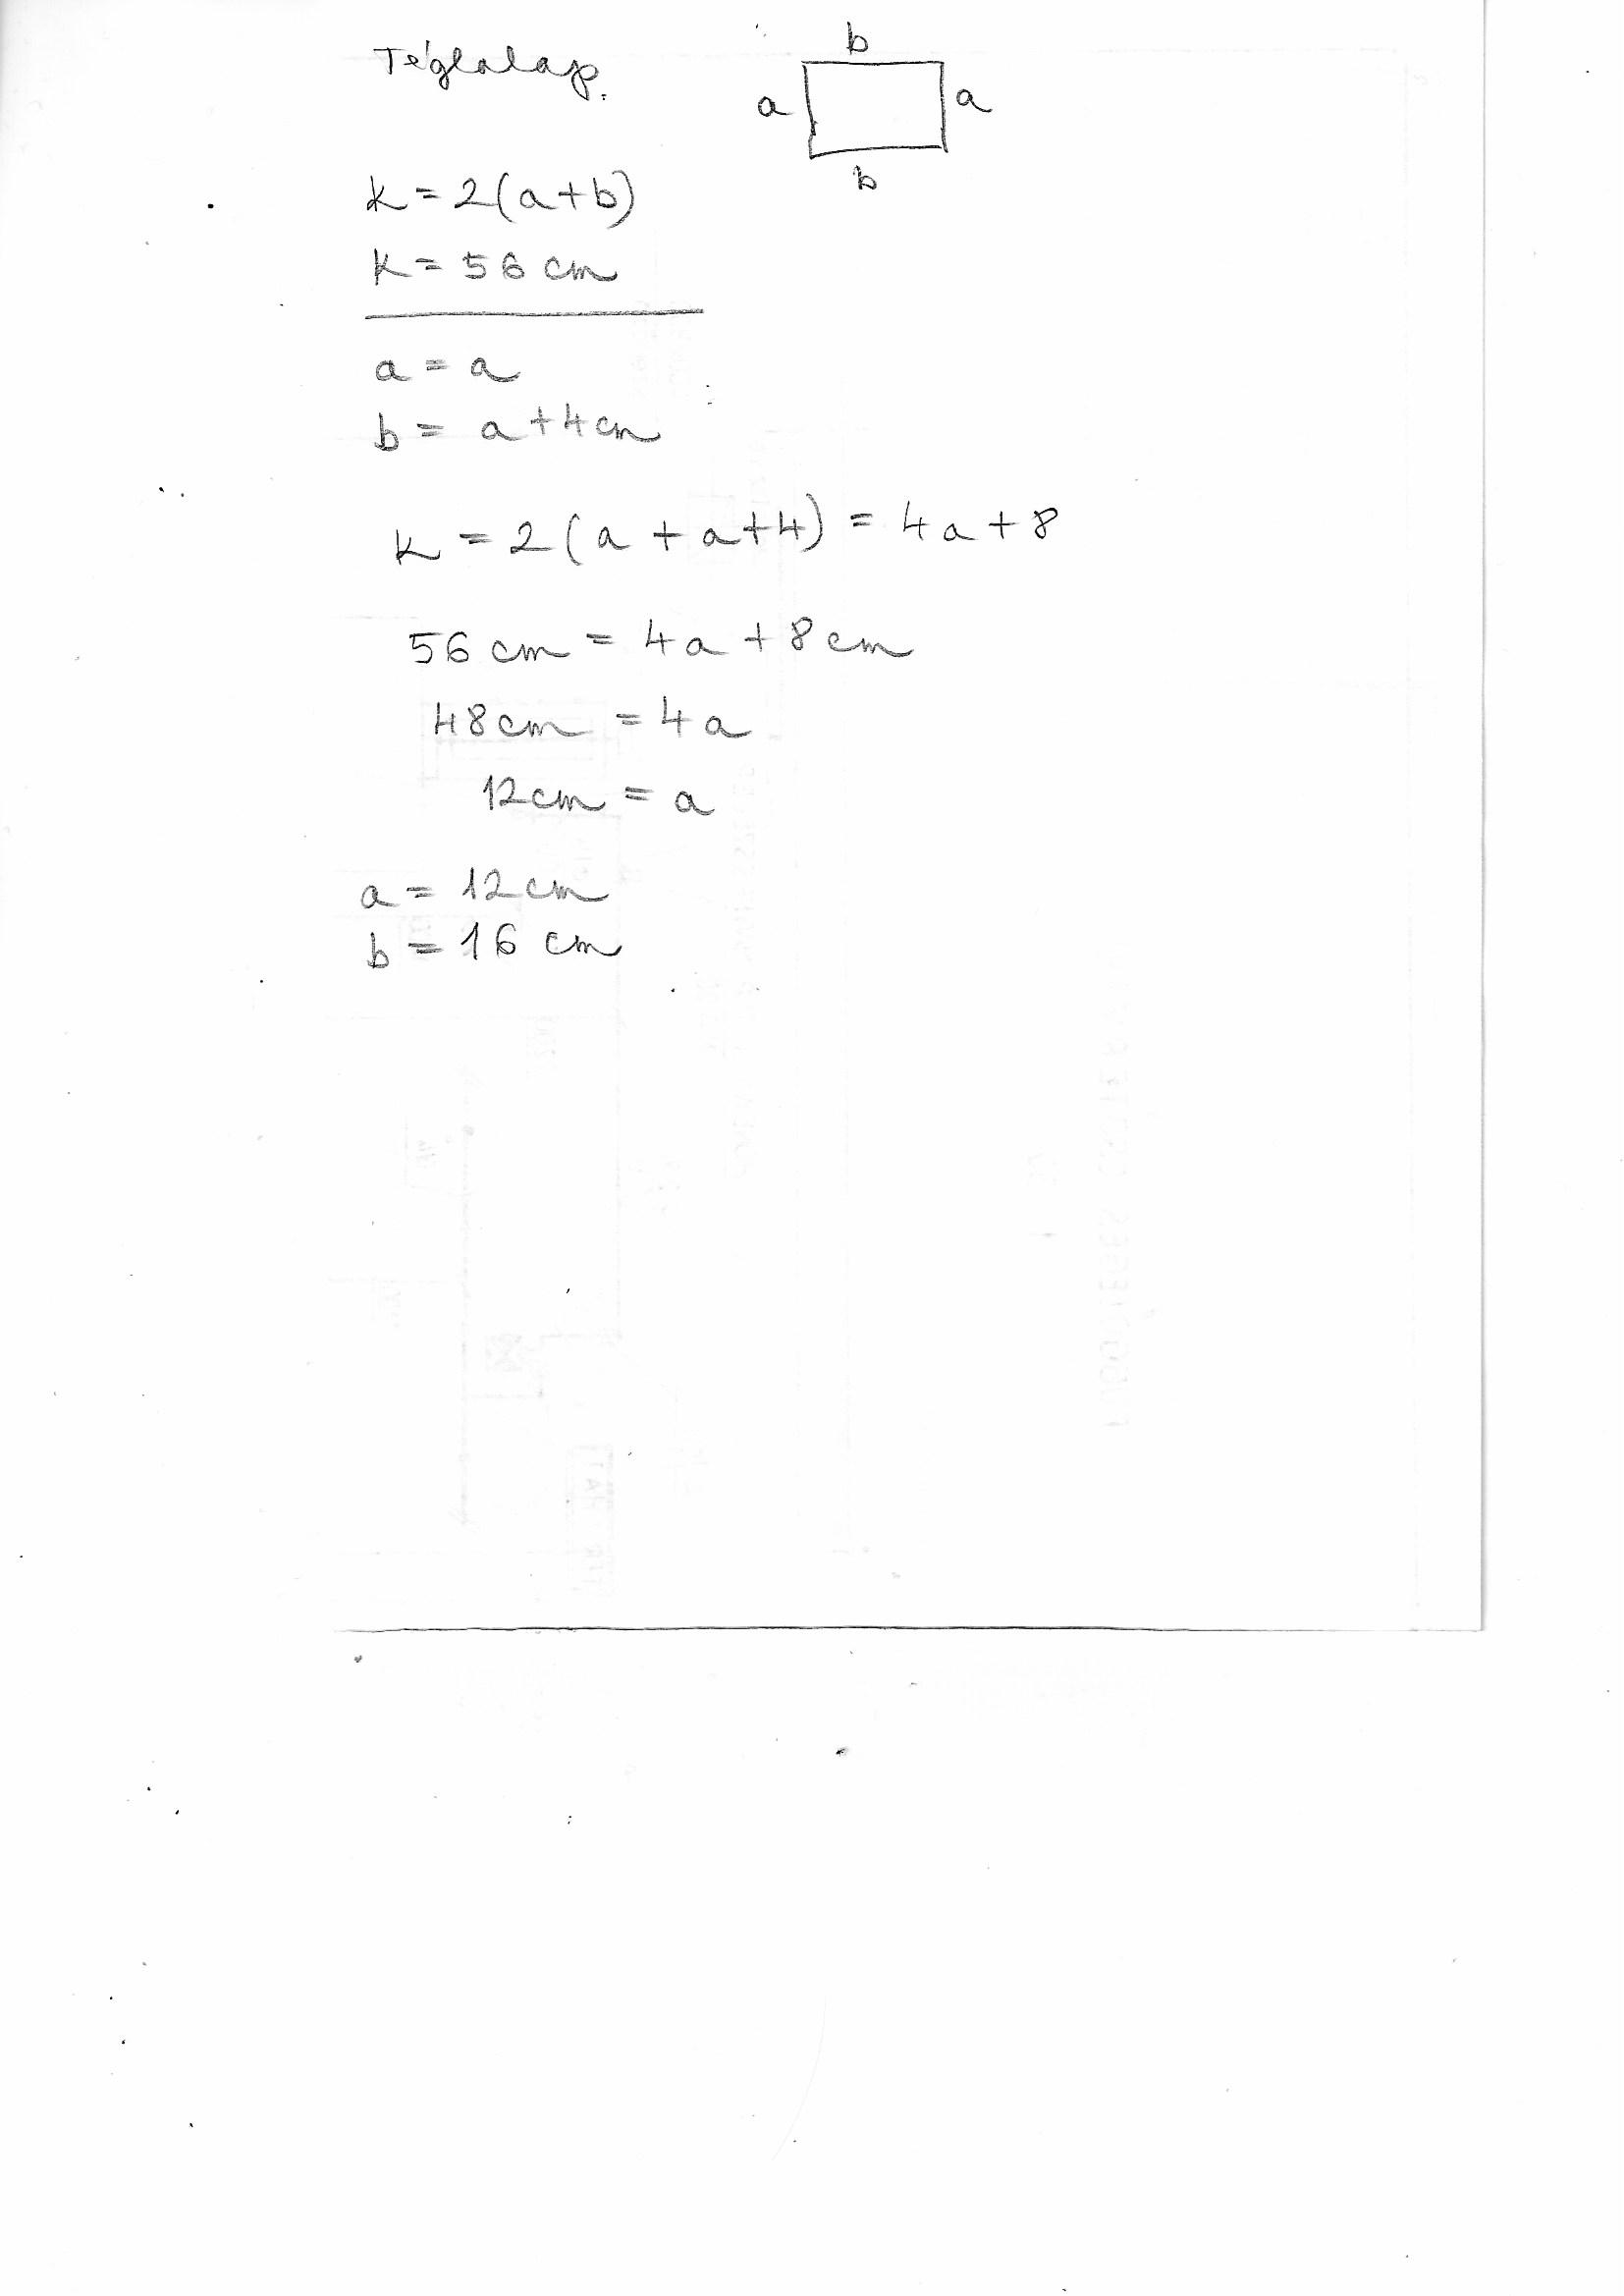 Téglalap.
b
a
a
b
k = 2(a+b)
k = 56 cm
a = a
b = a + 4 cm
k = 2(a + a + 4) = 4a + 8
56 cm = 4a + 8 cm
48 cm = 4a
12 cm = a
a = 12 cm
b = 16 cm